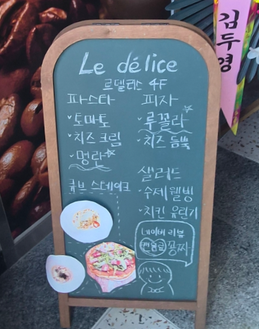 Le délice
르델리스 4F
파스타
· 토마토
· 치즈크림
· 명란
큐브 스테이크
피자
· 루꼴라
· 치즈 듬뿍
샐러드
· 수제 웰빙
· 치킨 유린기
네이버 리뷰
음료 공짜
김두영